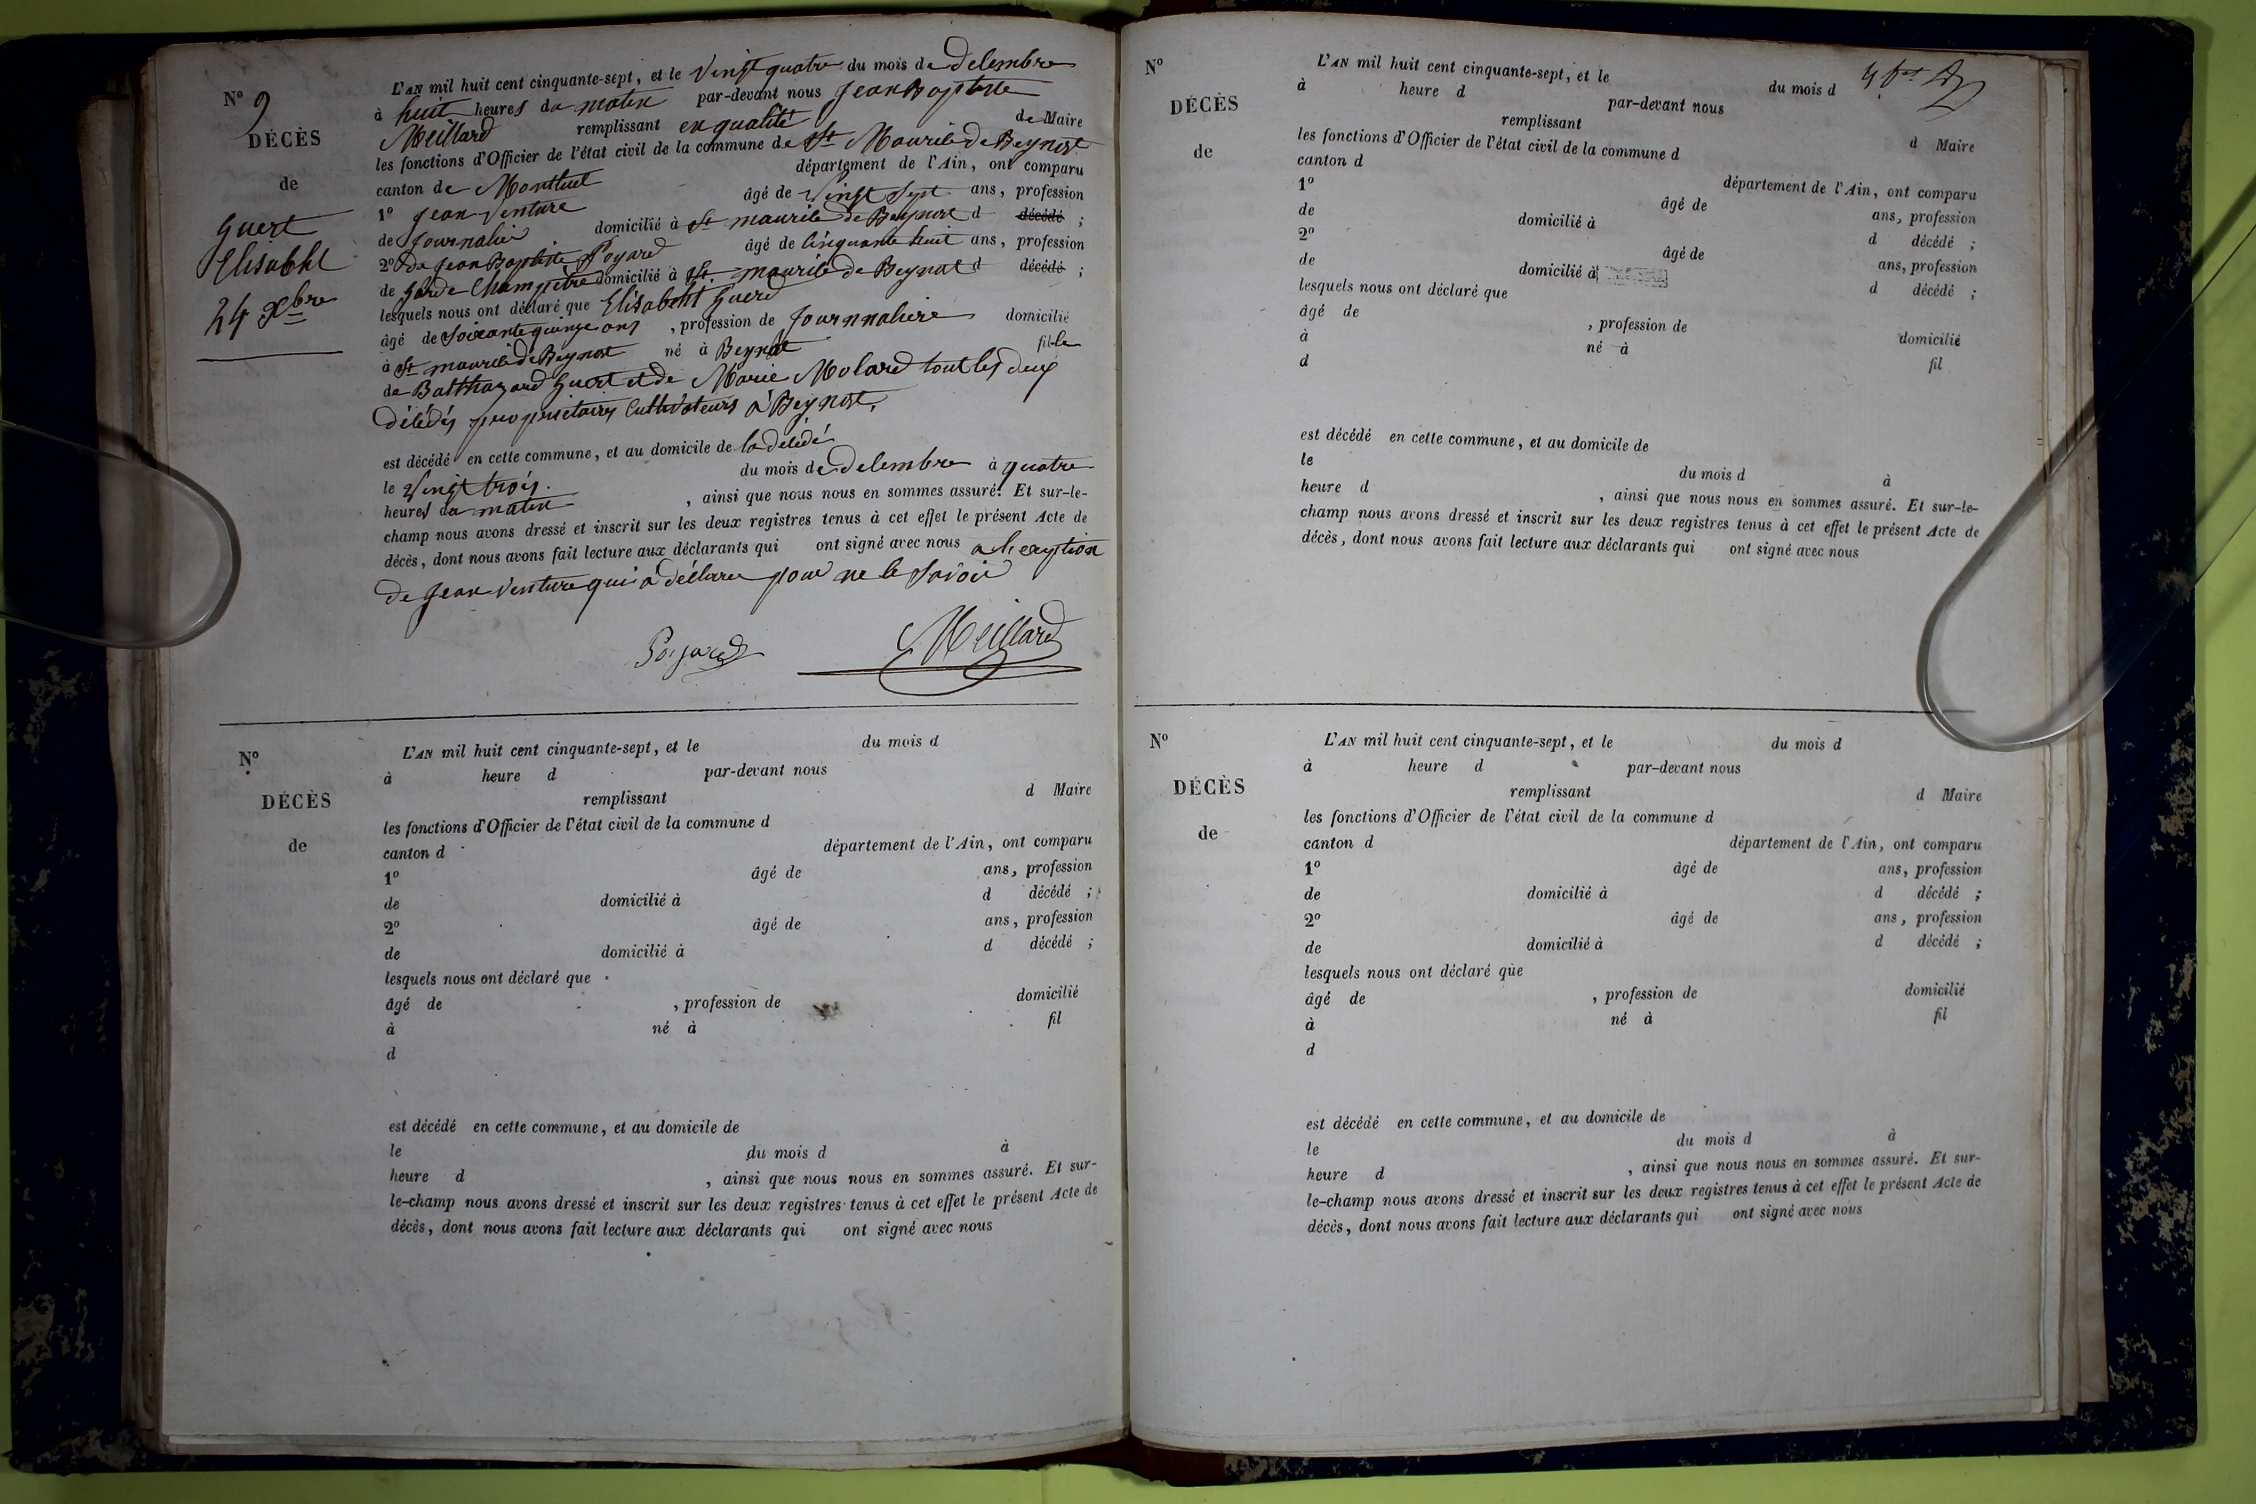 N° 9
DÉCÈS
de
Guert
Elisabht
24 Xbre
L'AN mil huit cent cinquante-sept, et le Vingt quatre du mois de décembre
à huit heures du matin par-devant nous Jean Baptiste
Meillard remplissant en qualité de Maire
les fonctions d'Officier de l'état civil de la commune de St Maurice de Beynost
canton de Montluel département de l'Ain, ont comparu
1° Jean Venture âgé de Vingt Sept ans, profession
de Journalier domicilié à St maurice de Beynost d décédé ;
2° De Jean Baptiste Poyard âgé de Cinquante huit ans, profession
de Garde Champêtre domicilié à St maurice de Beynost d décédé ;
lesquels nous ont déclaré que Elisabeht Guerd
âgé de Soixante quinze ans , profession de Journnalière domicilié
à St maurice de Beynost né à Beynost fille
de Balthazard Guert et de Marie Molard tout les deux
décédés propriétaires Cultivateurs à Beynost,
est décédé en cette commune, et au domicile de la décédé
le Vingt trois. du mois de décembre à quatre
heures du matin , ainsi que nous nous en sommes assuré. Et sur-le-
champ nous avons dressé et inscrit sur les deux registres tenus à cet effet le présent Acte de
décès, dont nous avons fait lecture aux déclarants qui ont signé avec nous a l'exeption
de Jean Venture qui à déclarer pour ne le Savoir
Poyard Meillard
N°
DÉCÈS
de
L'AN mil huit cent cinquante-sept, et le du mois d
à heure d par-devant nous
remplissant d Maire
les fonctions d'Officier de l'état civil de la commune d
canton d département de l'Ain, ont comparu
1° âgé de ans, profession
de domicilié à d décédé ;
2° âgé de ans, profession
de domicilié à d décédé ;
lesquels nous ont déclaré que
âgé de , profession de domicilié
à né à fil
d
est décédé en cette commune, et au domicile de
le du mois d à
heure d , ainsi que nous nous en sommes assuré. Et sur-
le-champ nous avons dressé et inscrit sur les deux registres tenus à cet effet le présent Acte de
décès, dont nous avons fait lecture aux déclarants qui ont signé avec nous
N°
DÉCÈS
de
L'AN mil huit cent cinquante-sept, et le du mois d
à heure d par-devant nous
remplissant d Maire
les fonctions d'Officier de l'état civil de la commune d
canton d département de l'Ain, ont comparu
1° âgé de ans, profession
de domicilié à d décédé ;
2° âgé de ans, profession
de domicilié à d décédé ;
lesquels nous ont déclaré que
âgé de , profession de domicilié
à né à fil
d
est décédé en cette commune, et au domicile de
le du mois d à
heure d , ainsi que nous nous en sommes assuré. Et sur-le-
champ nous avons dressé et inscrit sur les deux registres tenus à cet effet le présent Acte de
décès, dont nous avons fait lecture aux déclarants qui ont signé avec nous
N°
DÉCÈS
de
L'AN mil huit cent cinquante-sept, et le du mois d
à heure d par-devant nous
remplissant d Maire
les fonctions d'Officier de l'état civil de la commune d
canton d département de l'Ain, ont comparu
1° âgé de ans, profession
de domicilié à d décédé ;
2° âgé de ans, profession
de domicilié à d décédé ;
lesquels nous ont déclaré que
âgé de , profession de domicilié
à né à fil
d
est décédé en cette commune, et au domicile de
le du mois d à
heure d , ainsi que nous nous en sommes assuré. Et sur-
le-champ nous avons dressé et inscrit sur les deux registres tenus à cet effet le présent Acte de
décès, dont nous avons fait lecture aux déclarants qui ont signé avec nous